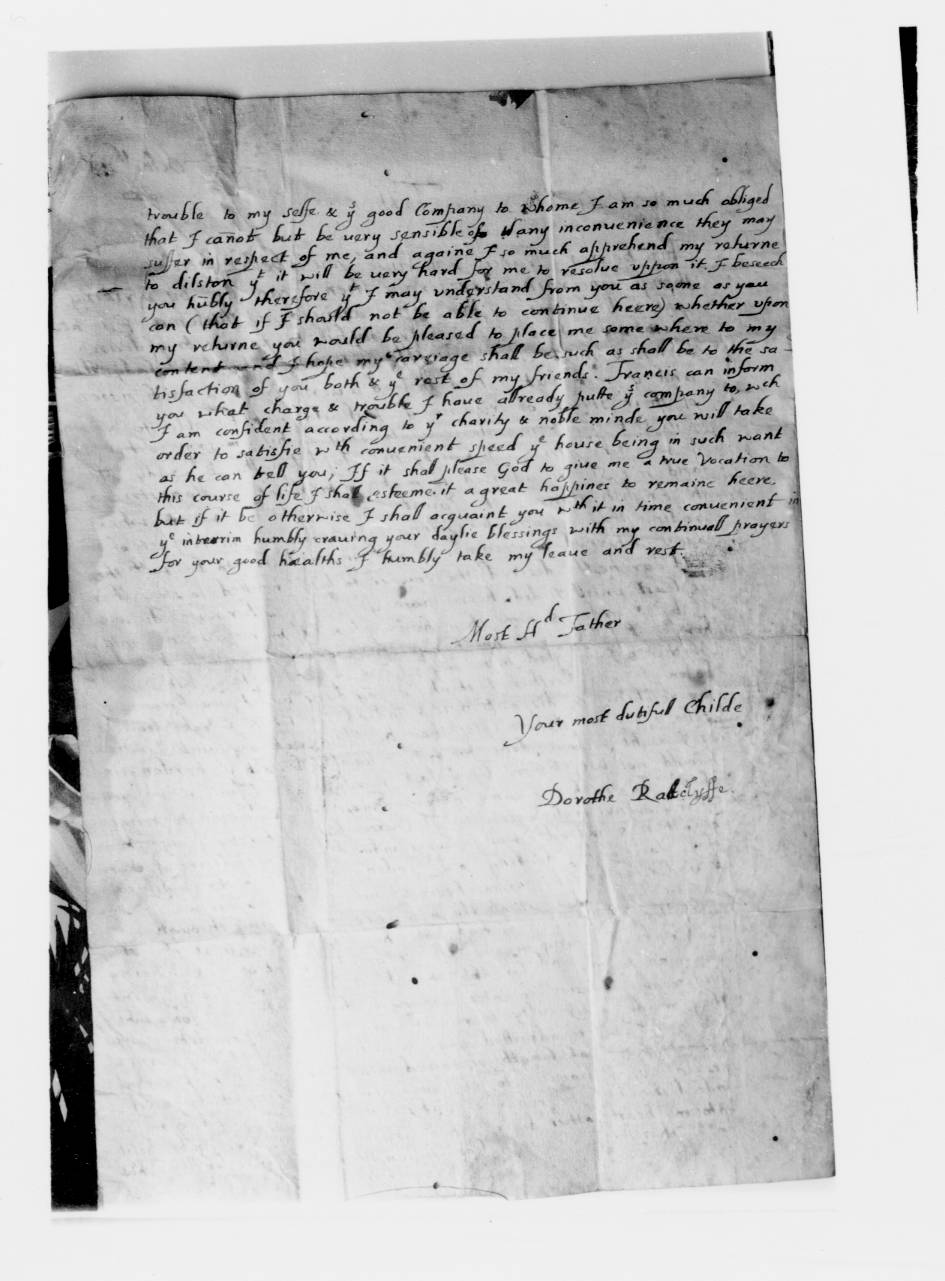 trouble to my selfe & yͤ good Company to whome I am so much obliged
that I cañot but be very sensible of any inconvenience they may
suffer in respect of me, and againe I so much apprehend my returne
to dilston yͭ it will be uery hard for me to resolve uppon it I beseech
you hũbly therefore yͭ I may understand from you as soone as you
can ( that if I should not be able to continue heere) whether upon
my returne you would be pleased to place me some where to my
content and I hope my carriage shall be such as shall be to the sa-
tisfaction of you both & yͤ rest of my friends. Francis can inform
you what charge & trouble I have allready putte yͤ company to, wch
I am confident according to yͬ charity & noble minde you will take
order to satisfie wth convenient speed yͤ house being in such want
as he can tell you; If it shal please God to give me a true Vocation to
this course of life I shal esteeme it a great happines to remaine heere,
but if it be otherwise I shall acquaint you wth it in time convenient in
yͤ interim humbly crauing your daylie blessings with my continuall prayers
for your good healths I humbly take my leaue and rest.
Most Hd Father
Your most dutifull Childe
Dorothe Ratclyffe.